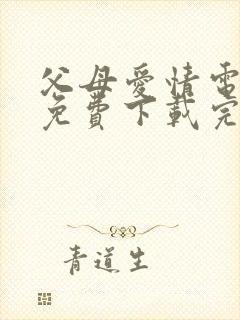 父母愛情電
免費下載完
青道生